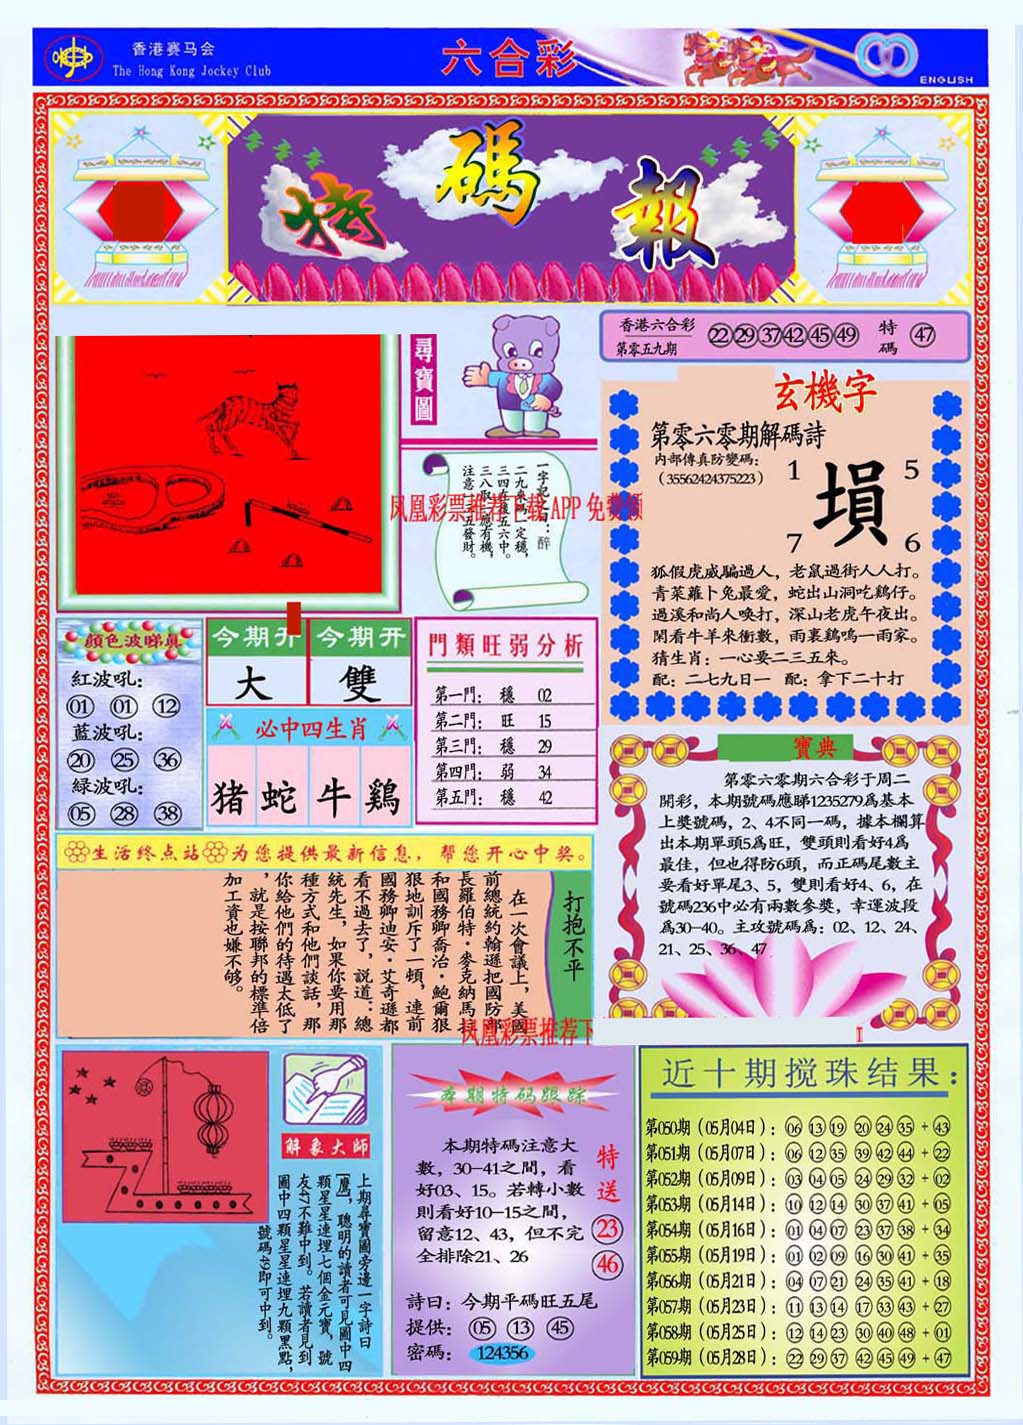 香港赛马会
The Hong Kong Jockey Club
六合彩
ENGLISH
特碼報
尋寶圖
香港六合彩
第零五九期
22 29 37 42 45 49
特碼
47
一字記之曰：醉
三八取三應有機，
注意二三五發財。
凤凰彩票推荐下载APP免费领
玄機字
第零六零期解碼詩
内部傳真防變碼：
（35562424375223）
1 5
塤
7 6
狐假虎威騙過人，老鼠過街人人打。
青菜蘿卜兔最愛，蛇出山洞吃鷄仔。
過溪和尚人喚打，深山老虎午夜出。
閑看牛羊來衝數，雨裏鷄鳴一雨家。
猜生肖：一心要二三五來。
配：二七九日一 配：拿下二十打
顔色波睇真
紅波吼：
01 01 12
藍波吼：
20 25 36
緑波吼：
05 28 38
今期开 今期开
大 雙
必中四生肖
猪 蛇 牛 鷄
門類旺弱分析
第一門： 穩 02
第二門： 旺 15
第三門： 穩 29
第四門： 弱 34
第五門： 穩 42
寶典
第零六零期六合彩于周二
開彩，本期號碼應睇1235279爲基本
上獎號碼，2、4不同一碼，據本欄算
出本期單頭5爲旺，雙頭則看好4爲
最佳，但也得防6頭，而正碼尾數主
要看好單尾3、5，雙則看好4、6，在
號碼236中必有兩數參獎，幸運波段
爲30-40。主攻號碼爲：02、12、24、
21、25、36、47
生活终点站 为您提供最新信息，帮您开心中奖。
打抱不平
在一次會議上，美國
前總統約翰遜把國防部
長羅伯特·麥克納馬拉
和國務卿喬治·鮑爾狠
狠地訓斥了一頓，連前
國務卿迪安·艾奇遜都
看不過去了，説道：總
統先生，如果你要用那
種方式和他們談話，那
你給他們的待遇太低了
，就是按聯邦的標準倍
加工資也嫌不够。
凤凰彩票推荐下
解象大師
上期尋寶圖旁邊一字詩曰
[鷹]，聰明的讀者可見圖中四
顆星星連埋七個金元寶，號
友打不難中到。若讀者見到
圖中四顆星星連埋九顆黑點，
號碼49即可中到。
本期特码跟踪
本期特碼注意大
數，30-41之間，看
好03、15。若轉小數
則看好10-15之間，
留意12、43，但不完
全排除21、26
特送
23
46
詩曰：今期平碼旺五尾
提供： 05 13 45
密碼： 124356
近十期搅珠结果：
第050期（05月04日）：06 13 19 20 24 35 + 43
第051期（05月07日）：06 12 35 39 42 44 + 22
第052期（05月09日）：03 04 05 24 29 32 + 02
第053期（05月14日）：10 12 14 30 37 41 + 05
第054期（05月16日）：01 04 07 23 37 38 + 34
第055期（05月19日）：01 02 09 16 30 41 + 35
第056期（05月21日）：04 07 21 24 35 41 + 18
第057期（05月23日）：11 13 14 17 33 43 + 27
第058期（05月25日）：12 14 23 30 40 48 + 01
第059期（05月28日）：22 29 37 42 45 49 + 47